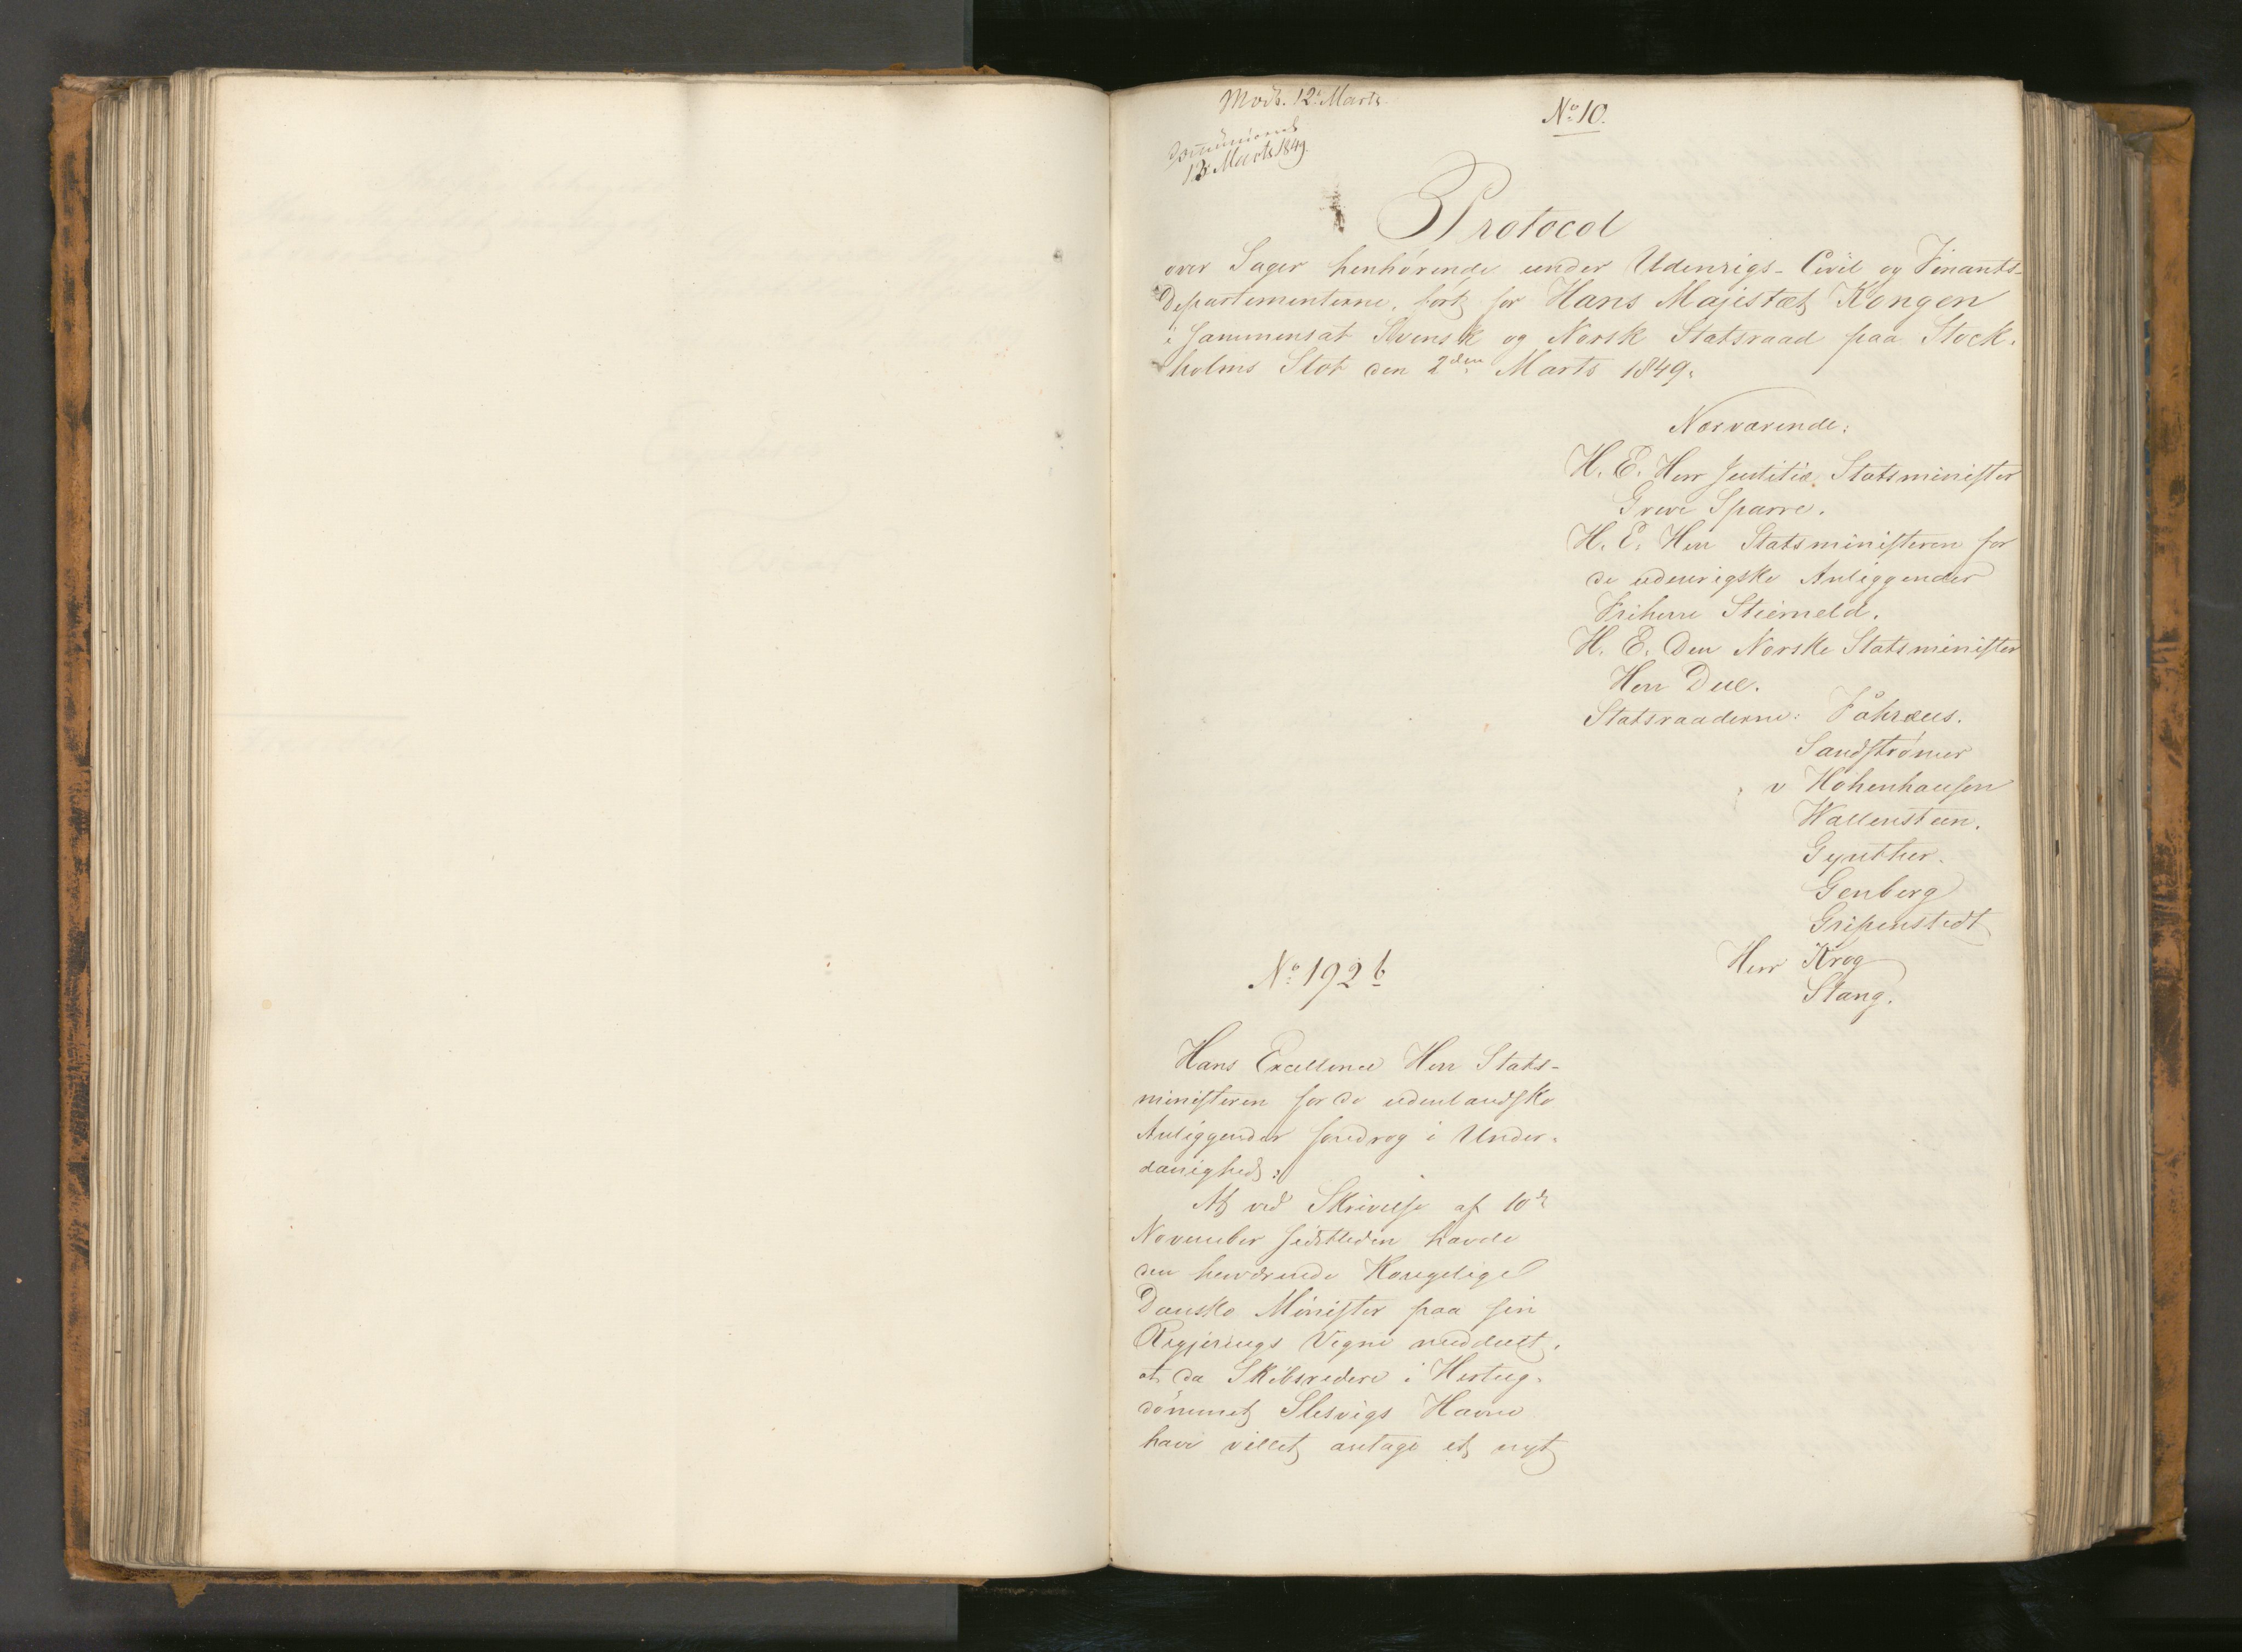 Modt. 12. Marts
No 10.
13 Marts 1849.
Protocol
over Sager henhörende under Udenrigs- Civil og Finants-
Departementerne, fört for Hans Majestæt Kongen
i sammensat Svensk og Norsk Statsraad paa Stock-
holms Slot den 2den Marts 1849.
Nærværende:
H. E. Herr Justitiæ Statsminister
Greve Sparre.
H. E. Herr Statsministeren for
de udenrigske Anliggender
Friherre Stierneld.
H. E. Den Norske Statsminister
Herr Due.
Statsraaderne: Fåhræus.
Sandströmer
v Hohenhausen
Wallensteen.
Gynther.
Genberg
Gripenstedt
Herr Krog
Stang.
No 192 b
Hans Excellence Herr Stats-
ministeren for de udenlandske
Anliggender foredrog i Under-
danighed:
At ved Skrivelse af 10de
November sidstleden havde
den herværende Kongelige
Danske Minister paa sin
Regjerings Vegne meddeelt,
at da Skibsredere i Hertug-
dömmet Slesvigs Havne
have villet antage et nyt